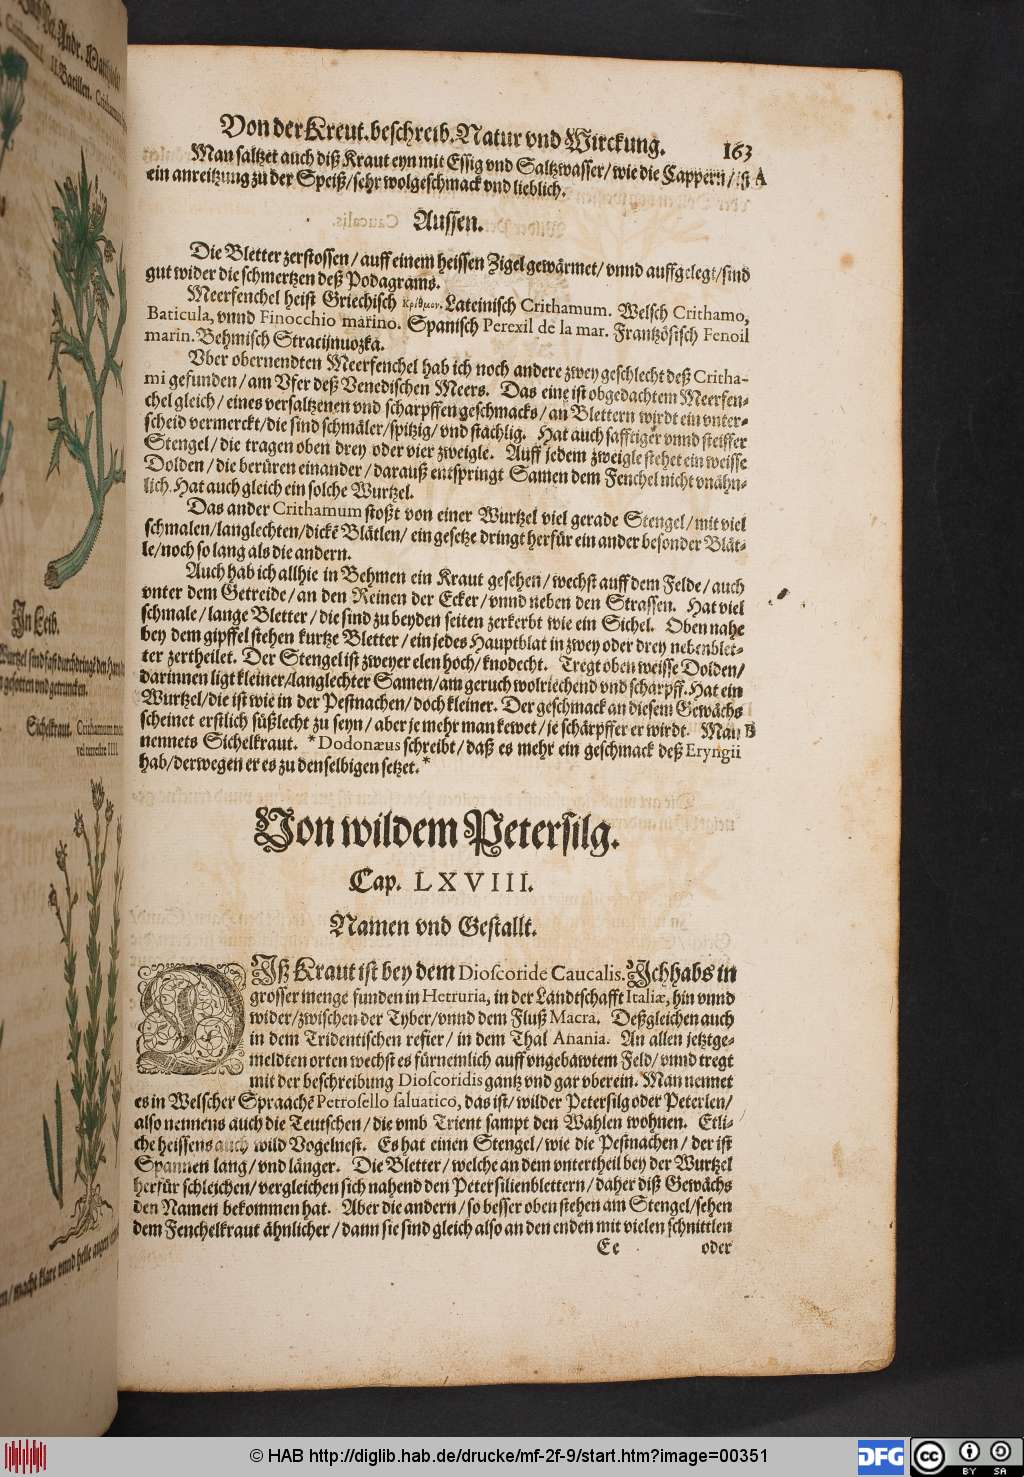 Von der Kreut. beschreib. Natur vnd Wirckung. 163
Man saltzet auch diß Kraut eyn mit Essig vnd Saltzwasser/ wie die Cappern/ iß A
ein anreitzung zu der Speiß/ sehr wolgeschmack vnd lieblich.
Aussen.
Die Bletter zerstossen/ auff einem heissen Zigel gewärmet/ vnnd auffgelegt/ sind
gut wider die schmertzen deß Podagrams.
Meerfenchel heist Griechisch κρίθμον. Lateinisch Crithamum. Welsch Crithamo,
Baticula, vnnd Finocchio marino. Spanisch Perexil de la mar. Frantzösisch Fenoil
marin. Behmisch Stracijnuozka.
Vber obernendten Meerfenchel hab ich noch andere zwey geschlecht deß Critha-
mi gefunden/ am Vfer deß Venedischen Meers. Das eine ist obgedachtem Meerfen-
chel gleich/ eines versaltzenen vnd scharpffen geschmacks/ an Blettern wirdt ein vnter-
scheid vermerckt/ die sind schmäler/ spitzig/ vnd stachlig. Hat auch saffeiger vnnd steiffer
Stengel/ die tragen oben drey oder vier zweigle. Auff jedem zweigle stehet ein weisse
Dolden/ die berüren einander/ darauß entspringt Samen dem Fenchel nicht vnähn-
lich. Hat auch gleich ein solche Wurtzel.
Das ander Crithamum stoßt von einer Wurtzel viel gerade Stengel/ mit viel
schmalen/ langlechten/ dickē Blätlen/ ein gesetze dringt herfür ein ander besonder Blät-
le/ noch so lang als die andern.
Auch hab ich allhie in Behmen ein Kraut gesehen/ wechst auff dem Felde/ auch
vnter dem Getreide/ an den Reinen der Ecker/ vnnd neben den Strassen. Hat viel
schmale/ lange Bletter/ die sind zu beyden seiten zerkerbt wie ein Sichel. Oben nahe
bey dem gipffel stehen kurtze Bletter/ ein jedes Hauptblat in zwey oder drey nebenblet-
ter zertheilet. Der Stengel ist zweyer elen hoch/ knodecht. Tregt oben weisse Dolden/
darinnen ligt kleiner/ langlechter Samen/ am geruch wolriechend vnd scharpff. Hat ein
Wurtzel/ die ist wie in der Pestnachen/ doch kleiner. Der geschmack an diesem Gewächs
scheinet erstlich süßlecht zu seyn/ aber je mehr man kewet/ je schärpffer er wirdt. Man B
nennets Sichelkraut. * Dodonæus schreibt/ daß es mehr ein geschmack deß Eryngii
hab/ derwegen er es zu denselbigen setzet. *
Von wildem Petersilg.
Cap. LXVIII.
Namen vnd Gestallt.
DIß Kraut ist bey dem Dioscoride Caucalis. Ich habs in
grosser menge funden in Hetruria, in der Landtschafft Italiæ, hin vnnd
wider/ zwischen der Tyber/ vnnd dem Fluß Macra. Deßgleichen auch
in dem Tridentischen refier/ in dem Thal Anania. An allen jetztge-
meldten orten wechst es fürnemlich auff vngebawtem Feld/ vnnd tregt
mit der beschreibung Dioscoridis gantz vnd gar vberein. Man nennet
es in Welscher Spraachē Petrosello saluatico, das ist/ wilder Petersilg oder Peterlen/
also nennens auch die Teutschen/ die vmb Trient sampt den Wahlen wohnen. Etli-
che heissens auch wild Vogelnest. Es hat einen Stengel/ wie die Pestnachen/ der ist
Spannen lang/ vnd länger. Die Bletter/ welche an dem vntertheil bey der Wurtzel
herfür schleichen/ vergleichen sich nahend den Petersilienblettern/ daher diß Gewächs
den Namen bekommen hat. Aber die andern/ so besser oben stehen am Stengel/ sehen
dem Fenchelkraut ähnlicher/ dann sie sind gleich also an den enden mit vielen schnittlen
Ee oder
In Leib.
Wurtzel sind fast durchdringē den
gesotten vnd getruncken.
Sichelkraut. Crithamum
vel terrestre IIII.
/ macht klare vnnd helle augen
© HAB http://diglib.hab.de/drucke/mf-2f-9/start.htm?image=00351
DFG
cc BY SA